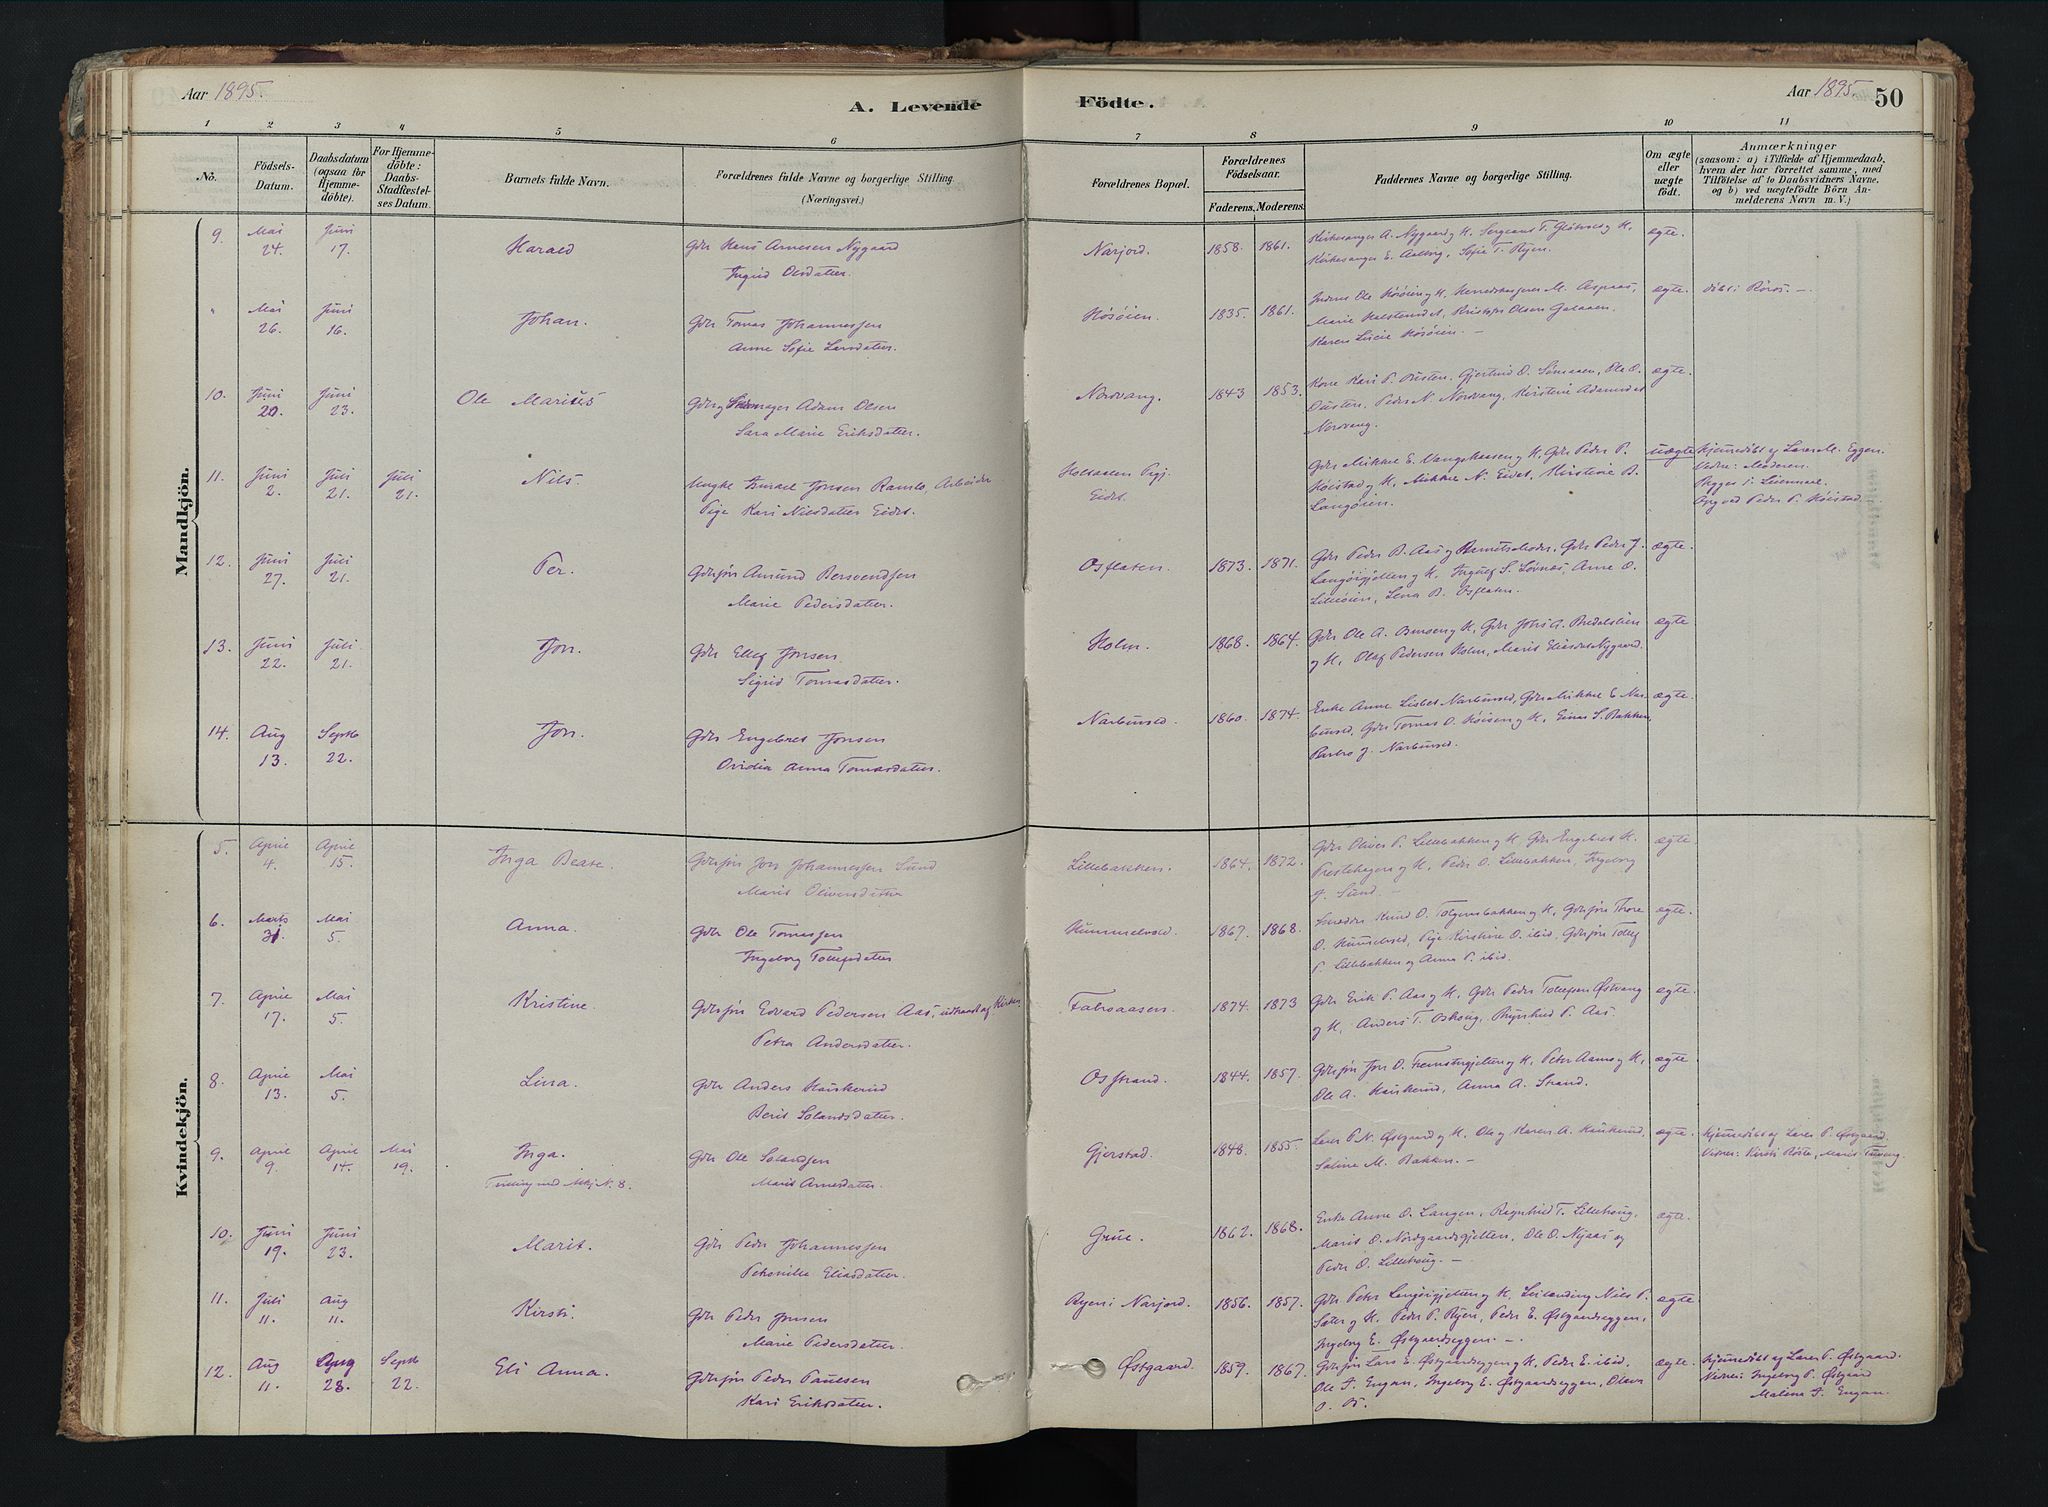 Aar 1895.
A. Levende Födte.
Aar 1895. 50
1 2 3 4 5 6 7 8 9 10 11
No.
Födsels-
Datum.
Daabsdatum
(ogsaa for
Hjemme-
döbte).
For Hjemme-
döbte:
Daabs-
Stadfæstel-
ses Datum.
Barnets fulde Navn.
Forældrenes fulde Navne og borgerlige Stilling.
(Næringsvei.)
Forældrenes Bopæl.
Forældrenes
Födselsaar.
Faderens. Moderens.
Faddernes Navne og borgerlige Stilling.
Om ægte
eller
uægte
födt.
Anmærkninger
(saasom: a) i Tilfælde af Hjemmedaab,
hvem der har forrettet samme, med
Tilföielse af to Daabsvidners Navne,
og b) ved uægtefödte Börn An-
melderens Navn m. V.)
Mandkjön.
9. Mai 24. Juni 17. Harald
Gdr Hans Arnesen Nygaard
Ingrid Olsdatter.
Narjord. 1858. 1861.
Kirkesanger A. Nygaard og H. Sergeant T. og H.
Kirkesanger E. Aalbog, Sofie T. Ryen.
ægte.
" Mai 26. Juni 16. Johan.
Gdr Tomas Johannessen
Anne Sofie Larsdatter.
Høsøien. 1835. 1861.
Ole Høsøien og H, M. Aspaas,
Marie, Kristofer Olsen Galaaen,
Karen Lucie Høsøien. —
ægte. døbt i Röros. —
10. Juni 20. Juni 23. Ole Marius
Gdr og Adam Olsen
Sara Marie Eriksdatter.
Nordvang. 1843 1853.
Kone Kari P. Ousten, Gjertrud O., Ole O.
Ousten, Peder N. Nordvang, Kirstine Adamsdat
Nordvang.
ægte.
11. Juni 2. Juli 21. Juli 21. Nils.
Ungke Israel Jonsen Ramlo, Arbeider
Pige Kari Nilsdatter Eidet.
Holtaalen Pgj.
Eidet.
Gdr Mikkel E. Vangshaasen og H, Gdr Peder P.
Høistad og H, Mikkel N. Eidet, Kirstine B.
Langøien.
uægte
Hjemmedøbt af Lærer M. Eggen.
Vidne: Moderen.
Opg ved Peder P. Høistad.
12. Juni 27. Juli 21. Per.
Gdrsøn Amund Bersvendsen
Marie Pedersdatter.
Osflaten. 1873. 1871.
Gdr Peder B. Aas og Barnets Moder, Gdr Peder J.
Langøigjelten og H, Ingulf S. Lørnæs, Anne O.
Lilleøien, Lena B. Osflaten.
ægte.
13. Juni 22. Juli 21. Jon.
Gdr Ellef Jonsen.
Sigrid Tomasdatter.
Holm. 1868. 1864.
Gdr Ole A. og H, Gdr Johs A. Bredalslien
og H, Olaf Pedersen Holm, Marit Eliasdat Nygaard.
ægte.
14. Aug 13. Septb 22. Jon.
Gdr Engebret Jonsen
Ovidia Anna Tomasdatter.
Narbuvold. 1860. 1874.
Enke Anne Lisbet Narbuvold, Gdr Mikkel E Nar-
buvold, Gdr Tomas O. Høisen og H, Einar S. Bakken,
J. Narbuvold.
ægte.
Kvindekjön.
5. April 4. April 15. Inga Beate.
Gdrsøn Jon Johannessen Sund
Marit Oliversdatter
Lillebakken. 1864. 1872.
Gdr Oliver P. Lillebakken og H, Gdr Engebret H.
Prestehagen og H, Peder O. Lillebakken, Ingeborg
J. Sund. —
ægte
6. Marts 31. Mai 5. Anna.
Gdr Ole Tomassen
Ingeborg Tollefsdatter
Hummelvold. 1867. 1868.
Smeden Knud O. Tolgensbakken og H, Gdrsøn Thore
O. Hummelvold, Pige Kirstine O. ibid, Gdrsøn Tollef
P. Lillebakken og Anna P. ibid.
ægte.
7. April 17. Mai 5. Kristine.
Gdrsøn Edvard Pedersen Aas, udtraadt af Kirken
Petra Andersdatter.
Falosaasen. 1874. 1873
Gdr Erik P. Aas og H, Gdr Peder Tollefsen Østvang
og H, Anders T. Oskoug, Rynhild P. Aas.
ægte.
8. April 13. Mai 5. Lina.
Gdr Anders Haukerud
Berit Solandsdatter.
Osstrand. 1844. 1857.
Gdrsøn Jon O. Fremstegjelten og H, Peter Aames og H,
Ole A. Haukerud, Anna A. Strand.
ægte.
9. April 9. April 14. Mai 19. Inga.
Tvilling med Mkj N. 8.
Gdr Ole Solandsen
Marit Arnesdatter.
Gjerstad. 1848. 1855.
Lærer P. N. Østgaard og H. Ole og Karen A. Haukerud,
Saline M. Bakken. —
ægte.
Hjemmedöbt af Lærer P. Østgaard.
Vidner: Kirsti Röste, Marit
10. Juni 19. Juni 23. Marit.
Gdr Peder Johannessen
Petronille Eliasdatter.
Grue. 1862. 1868.
Enke Anne O. Langen, Regnhild T. Lillehoug,
Marit O. Nordgaardsgjelten, Ole O. Nyaas og
Peder O. Lillehoug. —
ægte.
11. Juli 11. Aug 11. Kirsti.
Gdr Peder Jonsen
Marie Pedersdatter.
Ryen i Narjord. 1856. 1857.
Gdr Peter Langøigjelten og H, Leilending Nils P.
Sæter og H. Peder P. Ryen, Peder E. Østgaardseggen,
Ingeborg E. Østgaardseggen. —.
ægte
12. Aug 11. Aug 28. Septb 22. Eli Anna.
Gdrsøn Peder Paulsen
Kari Eriksdatter.
Østgaard. 1859. 1867.
Gdrsøn Lars E. Østgaardseggen og H, Peder E. ibid,
Ole J. Engan, Ingeborg E. Østgaardseggen, Oline
O. Ø.
ægte.
Hjemmedöbt af Lærer P. Østgaard.
Vidner: Ingeborg P. Østgaard
Malena J. Engan.